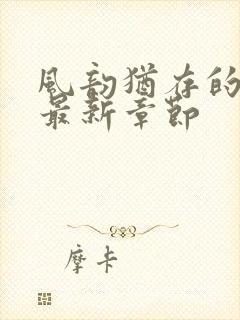 風韵猶存的
最新章節
摩卡